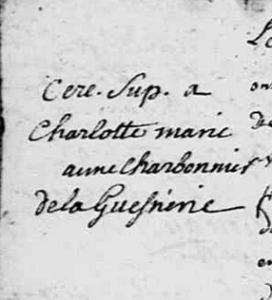 Cere. Sup. a
Charlotte marie
anne Charbonnier
de la Guesnerie